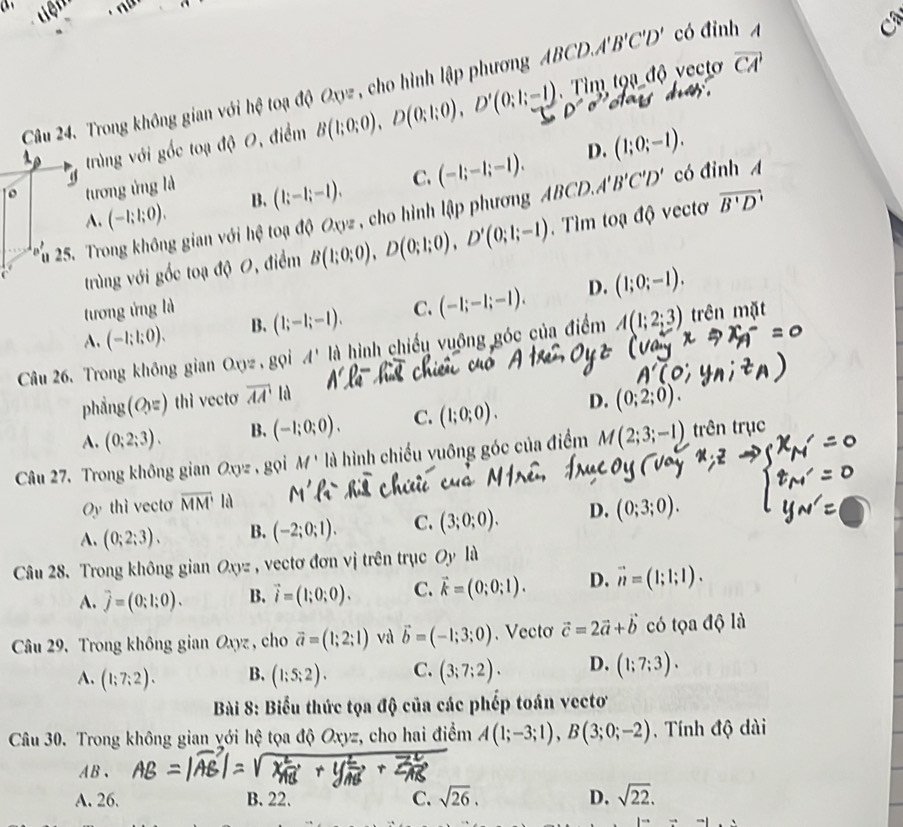 tiện
Câ
Câu 24. Trong không gian với hệ toạ độ Oxyz, cho hình lập phương ABCD.A'B'C'D' có đỉnh A
trùng với gốc toạ độ O, điểm B(1;0;0), D(0;1;0), D'(0;1;-1). Tìm toạ độ vectơ CA'
D' ở dưới.
tương ứng là
A. (-1;1;0). B. (1;-1;-1). C. (-1;-1;-1). D. (1;0;-1).
u 25. Trong không gian với hệ toạ độ Oxyz, cho hình lập phương ABCD.A'B'C'D' có đỉnh A
trùng với gốc toạ độ O, điểm B(1;0;0), D(0;1;0), D'(0;1;-1). Tìm toạ độ vectơ B'D'
tương ứng là
A. (-1;1;0). B. (1;-1;-1). C. (-1;-1;-1). D. (1;0;-1).
Câu 26. Trong không gian Oxyz, gọi A' là hình chiếu vuông góc của điểm A(1;2;3) trên mặt
A' là hình chiếu của A trên Oyz (vay x ⇒ x_A' = 0
A'(0; y_A; z_A)
phẳng(Oyz) thì vectơ AA' là
A. (0;2;3). B. (-1;0;0). C. (1;0;0). D. (0;2;0).
Câu 27. Trong không gian Oxyz, gọi M' là hình chiếu vuông góc của điểm M(2;3;-1) trên trục
M' là hc chiếu của M trên trục Oy (vay x,z ⇒ { x_M' = 0
z_M' = 0
y_M' =
Oy thì vectơ MM' là
A. (0;2;3). B. (-2;0;1). C. (3;0;0). D. (0;3;0).
Câu 28. Trong không gian Oxyz, vectơ đơn vị trên trục Oy là
A. j = (0;1;0). B. i = (1;0;0). C. k = (0;0;1). D. n = (1;1;1).
Câu 29. Trong không gian Oxyz, cho a = (1;2;1) và b = (-1;3;0). Vectơ c = 2a + b có tọa độ là
A. (1;7;2). B. (1;5;2). C. (3;7;2). D. (1;7;3).
Bài 8: Biểu thức tọa độ của các phép toán vectơ
Câu 30. Trong không gian với hệ tọa độ Oxyz, cho hai điểm A(1;-3;1), B(3;0;-2). Tính độ dài
AB. AB = |AB| = √(x²_AB + y²_AB + z²_AB)
A. 26. B. 22. C. √26. D. √22.